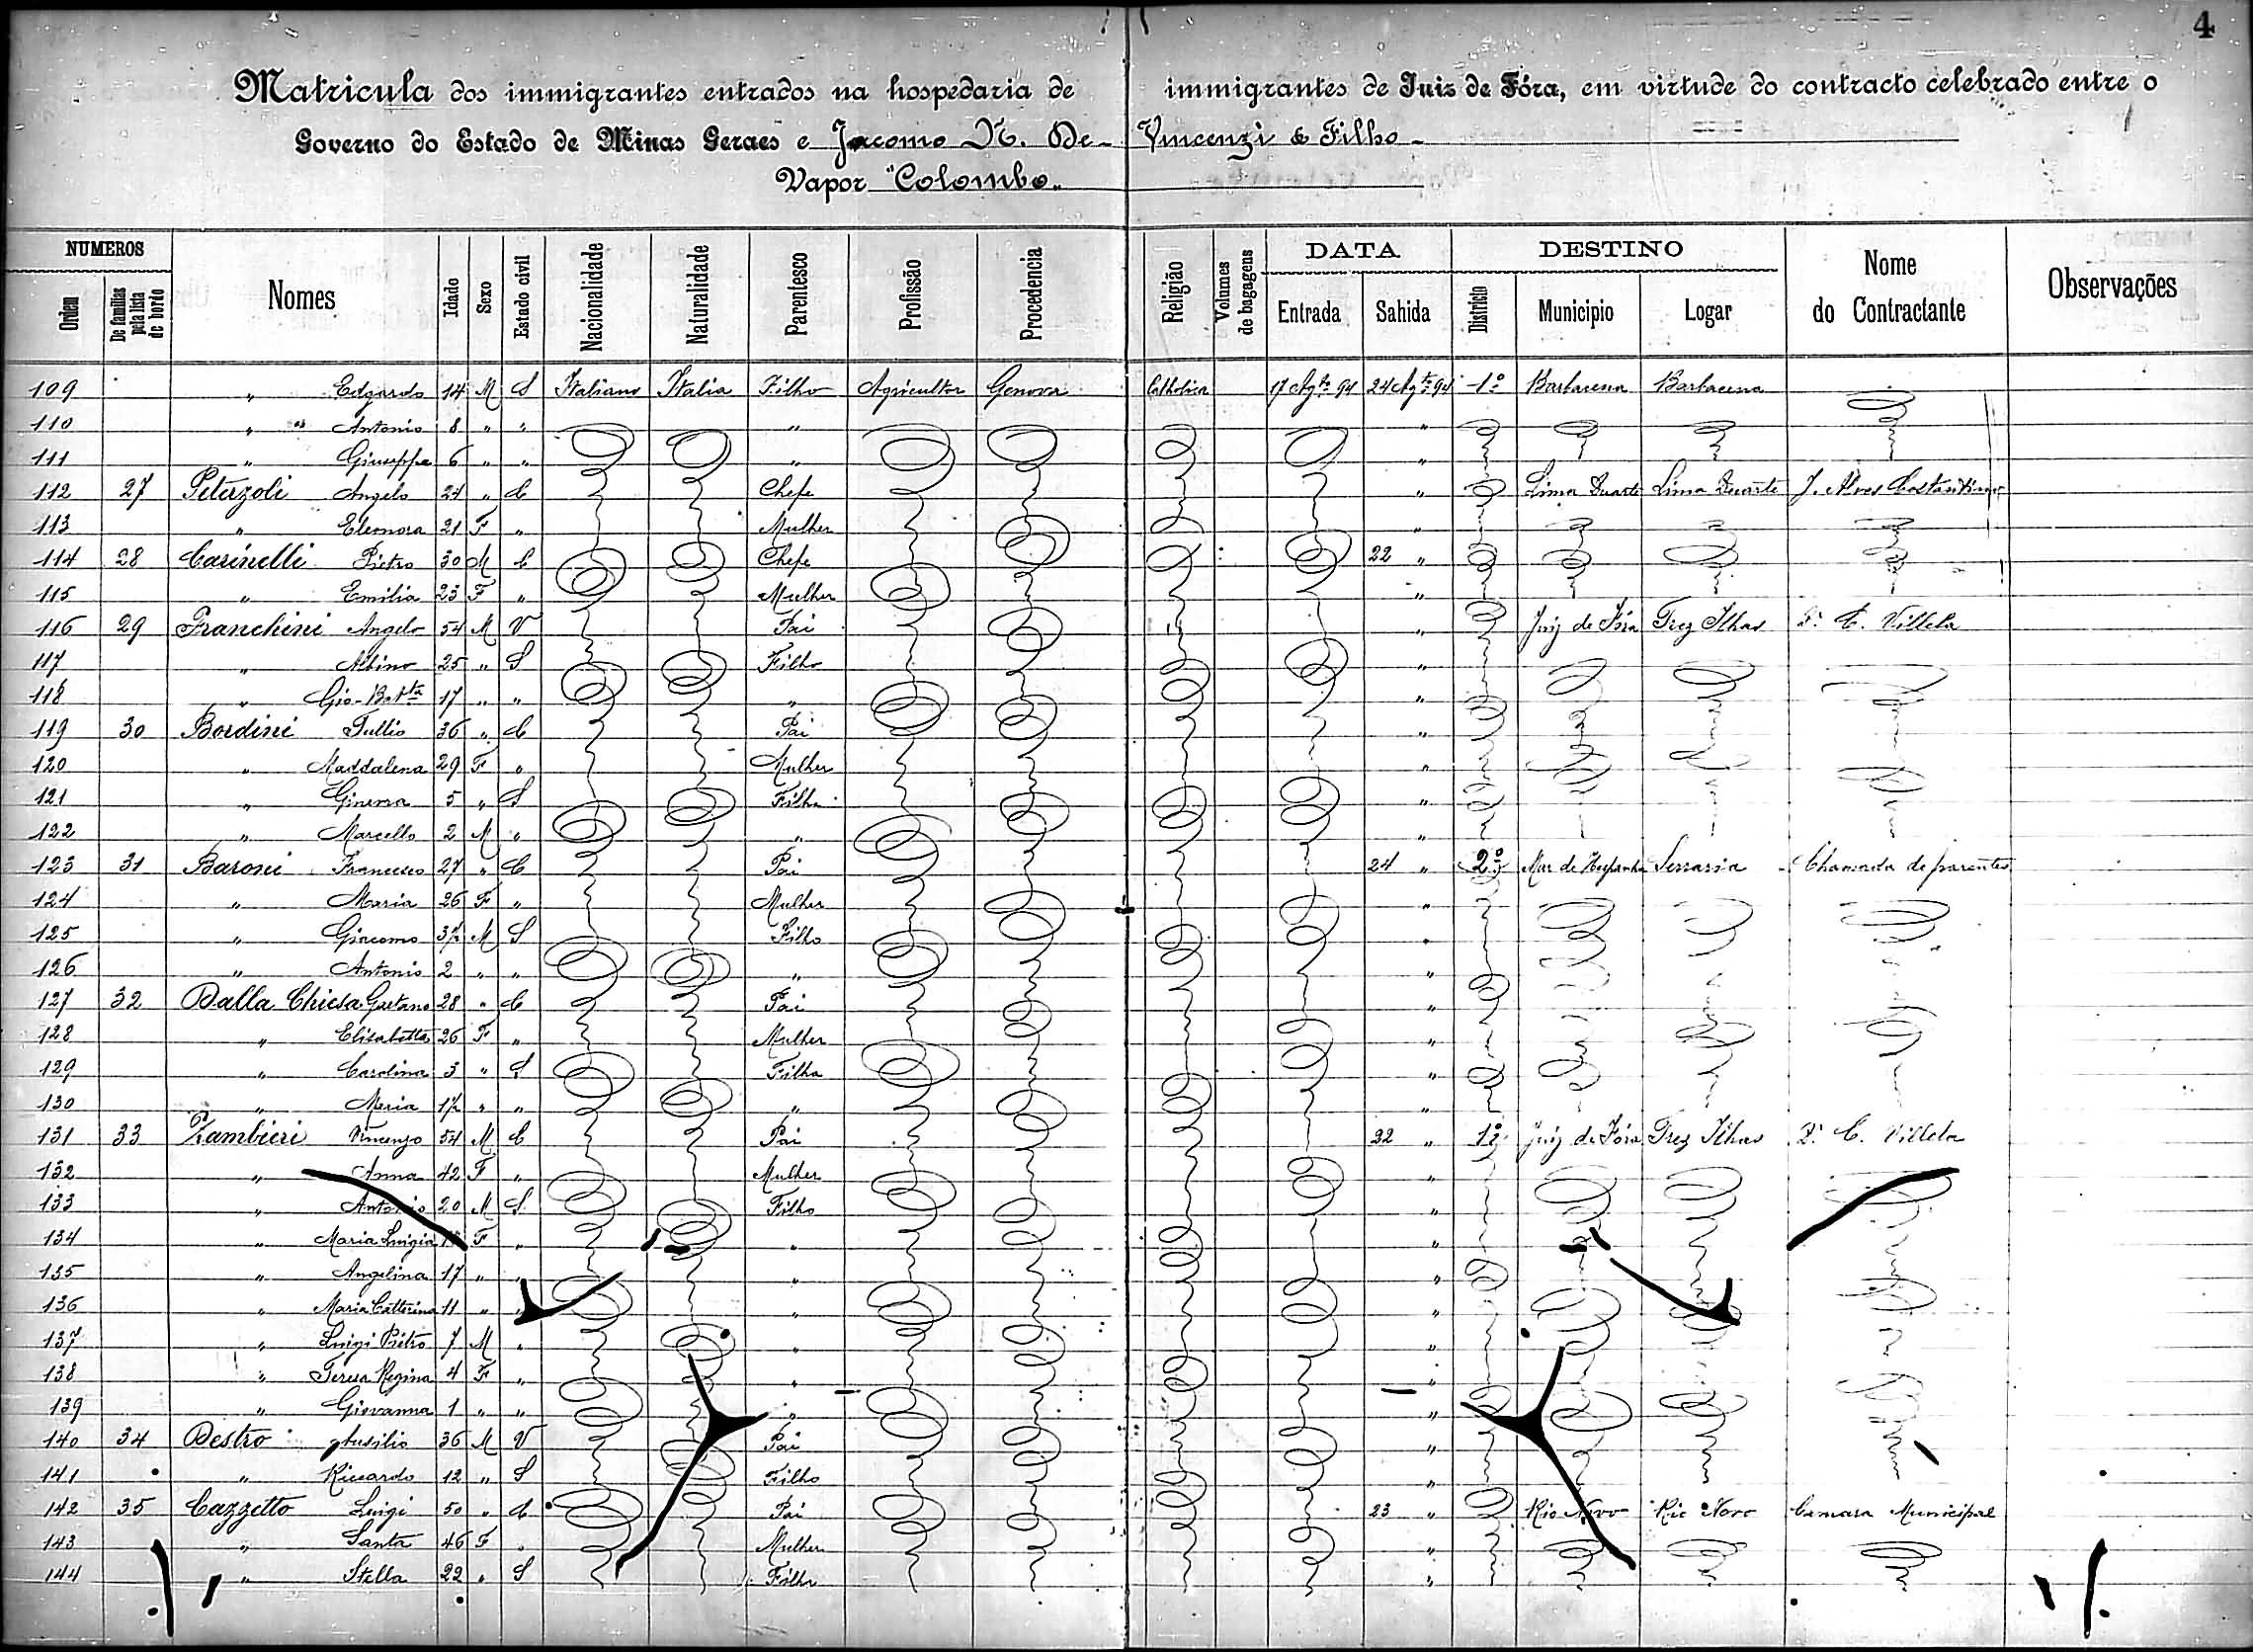 4
Matricula dos immigrantes entrados na hospedaria de immigrantes de Juiz de Fóra, em virtude do contracto celebrado entre o
Governo do Estado de Minas Geraes e Jacomo N. De- Vincenzi & Filho-
Vapor "Colombo"
NUMEROS Nomes Idade Sexo Estado civil Nacionalidade Naturalidade Parentesco Profissão Procedencia Religião Volumes de bagagens DATA DESTINO Nome do Contractante Observações
Ordem De familias pela lista de bordo Entrada Sahida Districto Municipio Logar
109 " Edgardo 14 M S Italiano Italia Filho Agricultor Genova Catholica 17 Agto 94 24 Agto 94 1º Barbacena Barbacena
110 " " Antonio 8 " " " "
111 " Giuseppe 6 " " " "
112 27 Peterzoli Angelo 24 " C Chefe " Lima Duarte Lima Duarte J. Alves
113 " Eleonora 21 F " Mulher "
114 28 Carinelli Pietro 30 M C Chefe 22 "
115 " Emilia 23 F " Mulher "
116 29 Franchini Angelo 54 M V Pai " Juiz de Fóra Trez Ilhas Dr C. Villela
117 " Albino 25 " S Filho "
118 " Gio-Batta 17 " " " "
119 30 Bordini Tullio 36 " C Pai "
120 " Maddalena 29 F " Mulher "
121 " Ginevra 5 " S Filha "
122 " Marcello 2 M " " "
123 31 Baroni Francesco 27 " C Pai 24 " 2º Mar de Hespanha Serraria Chamada de parentes
124 " Maria 26 F " Mulher "
125 " Giacomo 3½ M S Filho "
126 " Antonio 2 " " " "
127 32 Dalla Chiesa Gaetano 28 " C Pai "
128 " Elisabetta 26 F " Mulher "
129 " Carolina 3 " S Filha "
130 " Maria 1½ " " " "
131 33 Zambieri Vincenzo 54 M C Pai 22 " 1º Juiz de Fóra Trez Ilhas Dr C. Villela
132 " Anna 42 F " Mulher "
133 " Antonio 20 M S Filho "
134 " Maria Luigia F " " "
135 " Angelina 17 " " " "
136 " Maria Catterina 11 " " " "
137 " Luigi Pietro 7 M " " "
138 " Teresa Regina 4 F " " "
139 " Giovanna 1 " " " "
140 34 Destro 36 M V Pai "
141 " Riccardo 12 " S Filho "
142 35 Cazzetto Luigi 50 " C Pai 23 " Rio Novo Rio Novo Camara Municipal
143 " Santa 46 F " Mulher "
144 " Stella 22 " S Filha "